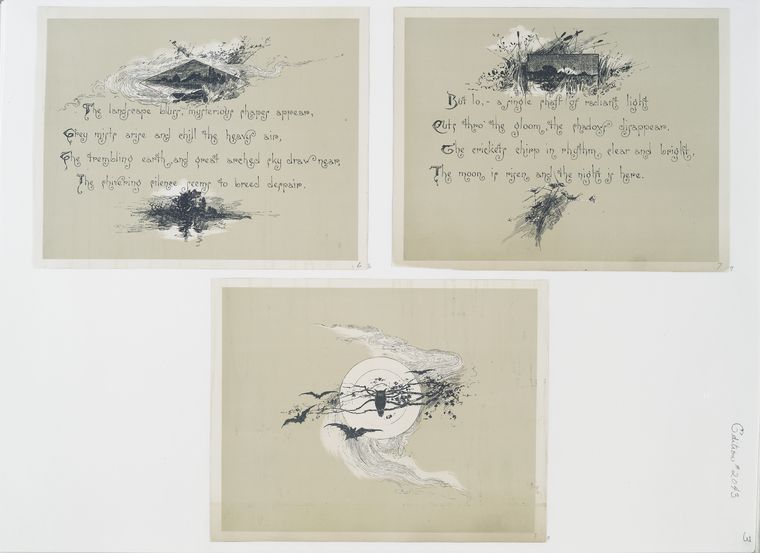 The landscape blurs, mysterious shapes appear,
Grey mists arise and chill the heavy air,
The trembling earth and great arched sky draw near,
The shivering silence seems to breed despair.
6
But lo,- a single shaft of radiant light
Cuts thro' the gloom, the shadows disappear.
The crickets chirp in rhythm clear and bright,
The moon is risen and the night is here.
7
Edition #2043
3